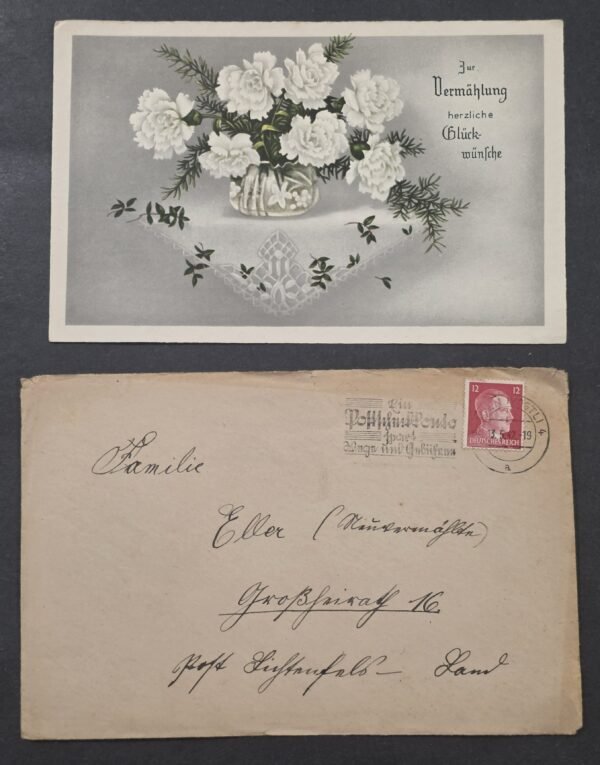 Zur
Vermählung
herzliche
Glück-
wünsche
Ein
Postscheckkonto
spart
Wege und Gebühren
12 12
DEUTSCHES REICH
4
-19
a
Familie
Eller (Neuvermählte)
Großheirath 16.
Post Lichtenfels - Land